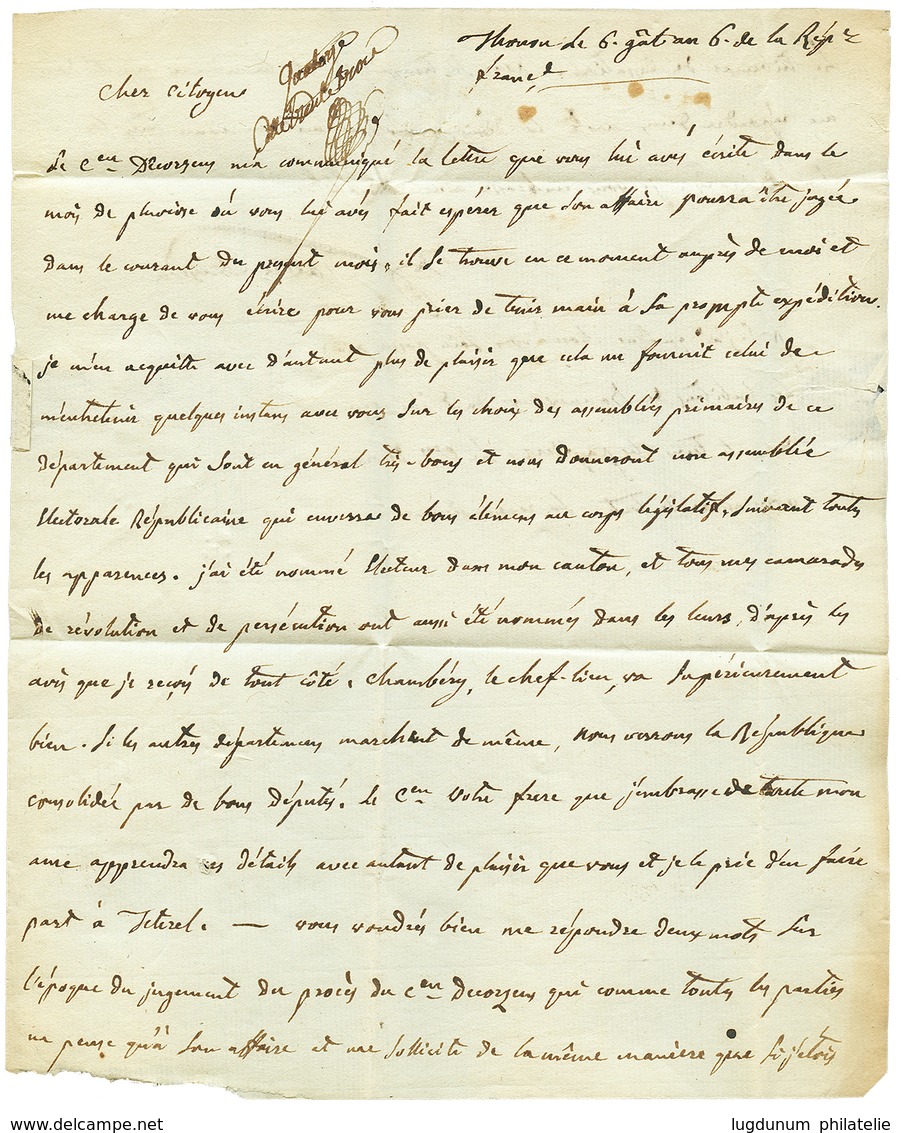 Thonon le 6. g.al an 6. de la Rép.e
franç.e
cher citoyen
Le C.en Decorzens m'a communiqué la lettre que vous lui avés écrite dans le
mois de pluviose où vous lui avés fait espérer que son affaire pourra être jugée
dans le courant du present mois, il se trouve en ce moment auprès de moi et
me charge de vous écrire pour vous prier de tenir main à sa prompte expédition.
je m'en acquitte avec d'autant plus de plaisir que cela me fournit celui de
m'entretenir quelques instans avec vous sur les choix des assemblées primaires de ce
département qui sont en général très-bons et nous donneront une assemblée
Electorale Républicaine qui enverra de bons élémens au corps législatif, suivant toutes
les apparences. j'ai été nommé Electeur dans mon canton, et tous mes camarades
de révolution et de persécution ont aussi été nommés dans les leurs, d'après les
avis que je reçois de tout côté. Chambéry, le chef-lieu, va supérieurement
bien. Si les autres départemens marchent de même, nous verrons la République
consolidée par de bons députés. Le C.en votre frere que j'embrasse de toute mon
ame apprendra ces détails avec autant de plaisir que vous et je le prie d'en faire
part à — vous voudrés bien me répondre deux mots sur
l'époque du jugement du procès du C.en Decorzens qui comme toutes les parties
ne pense qu'à son affaire et me sollicite de la même manière que si j'étois
www.delcampe.net
lugdunum philatelie